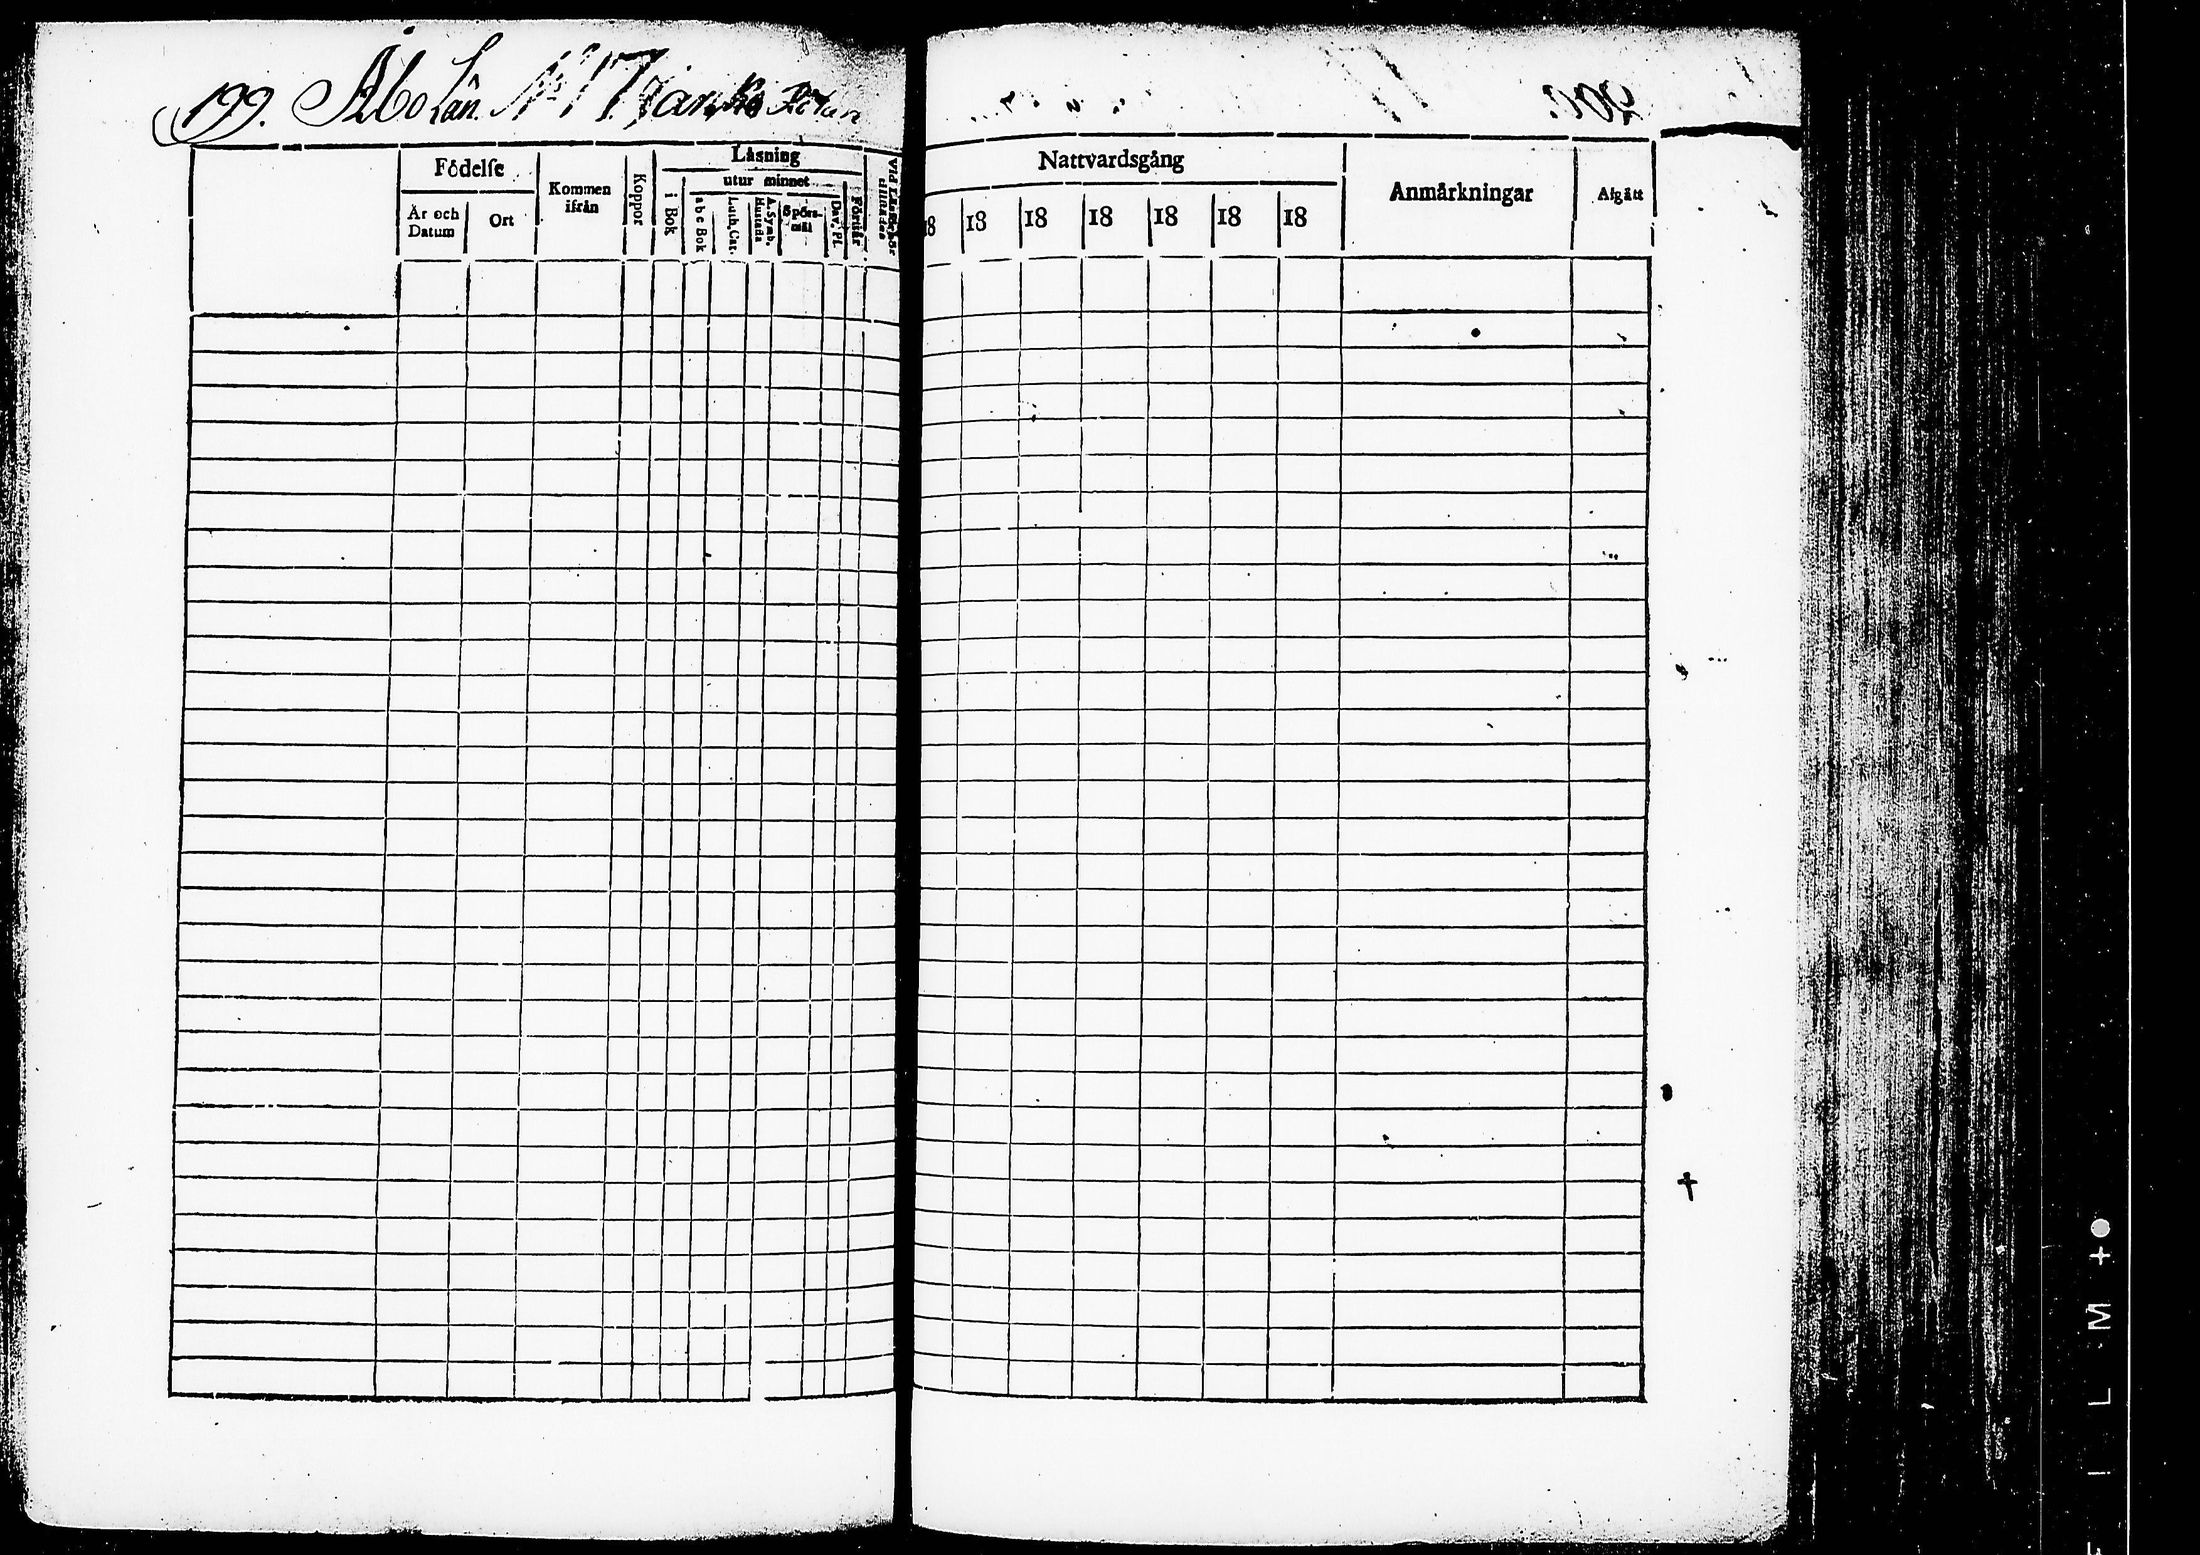 199. Åbo Län. No 17
Födelse
Kommen ifrån
Koppor
Läsning
utur minnet
År och Datum
Ort
i Bok
a b c Bok
Luth. Cat.
A. Symb. Hustafla
Spörsmål
Dav. Pl.
Förstår
Nattvardsgång
Anmärkningar
Afgått
18 18 18 18 18 18 18
FILM